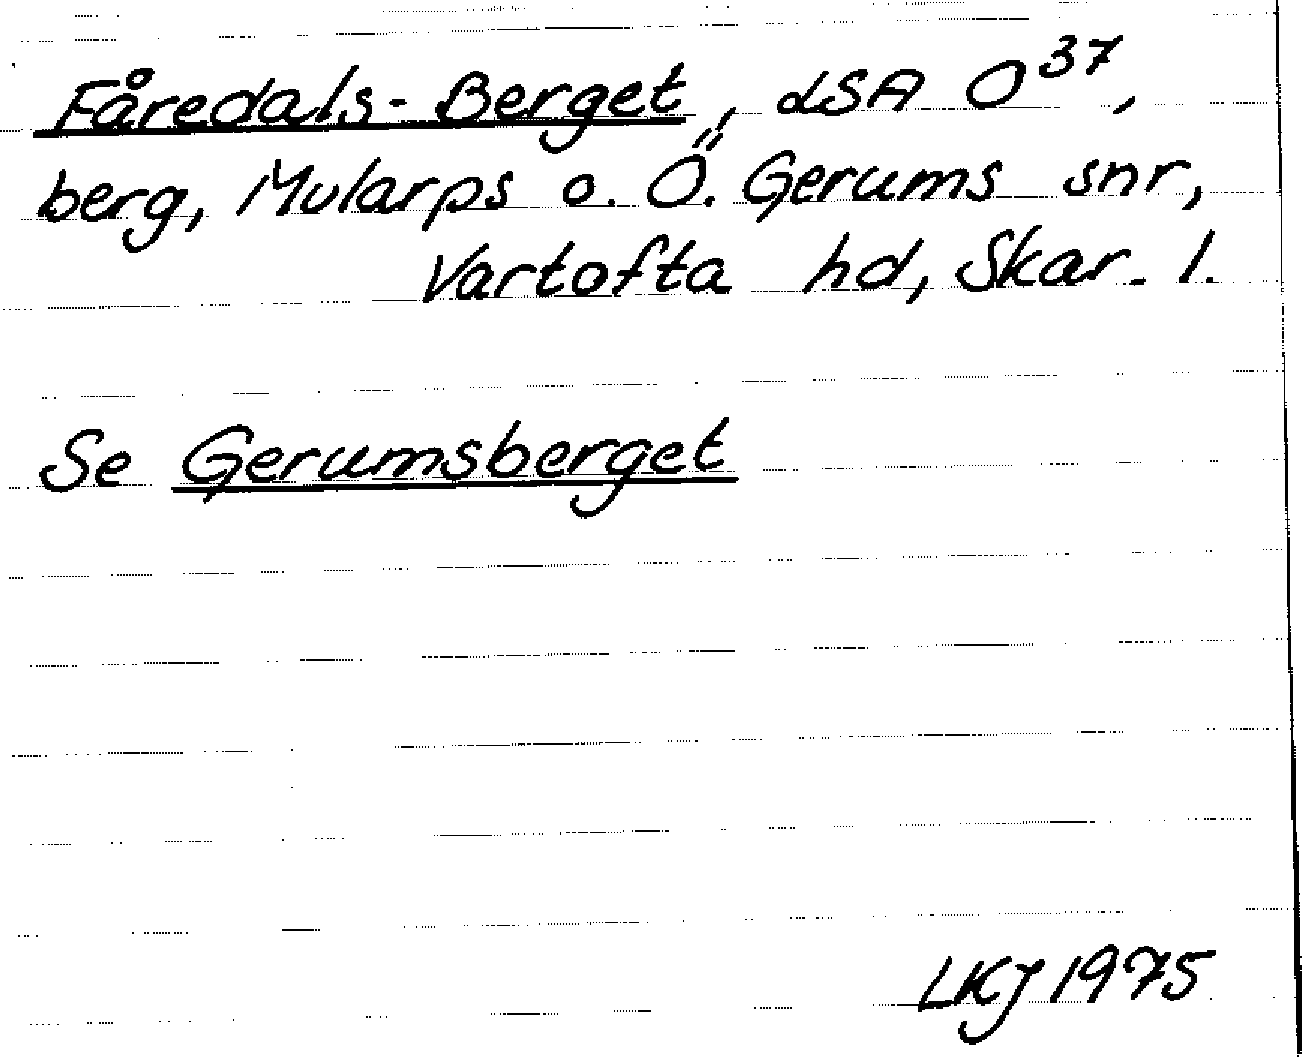 Fåredals-Berget, LSA O³⁷,
berg, Mularps o. Ö. Gerums snr,
Vartofta hd, Skar. l.
Se Gerumsberget
LKJ 1975